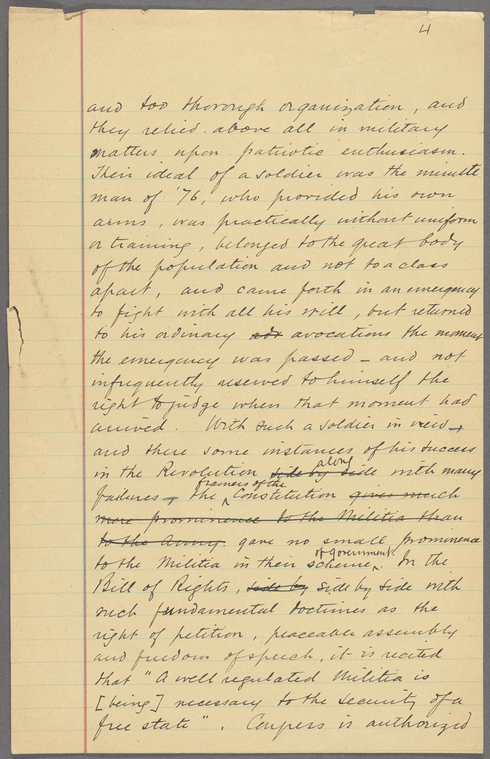 4
and too thorough organization, and
they relied above all in military
matters upon patriotic enthusiasm.
Their ideal of a soldier was the minute
man of '76, who provided his own
arms, was practically without uniform
or training, belonged to the great body
of the population and not to a class
apart, and came forth in an emergency
to fight with all his will, but returned
to his ordinary avocations the moment
the emergency was passed – and not
infrequently reserved to himself the
right to judge when that moment had
arrived. With such a soldier in view,
and there some instances of his success
in the Revolution side by side along with many
failures, the framers of the Constitution gives much
more prominence to the Militia than
to the Army. gave no small prominence
to the Militia in their scheme of government. In the
Bill of Rights, side by side by side with
such fundamental doctrines as the
right of petition, peaceable assembly
and freedom of speech, it is recited
that "A well regulated Militia is
[being] necessary to the security of a
free state". Congress is authorized